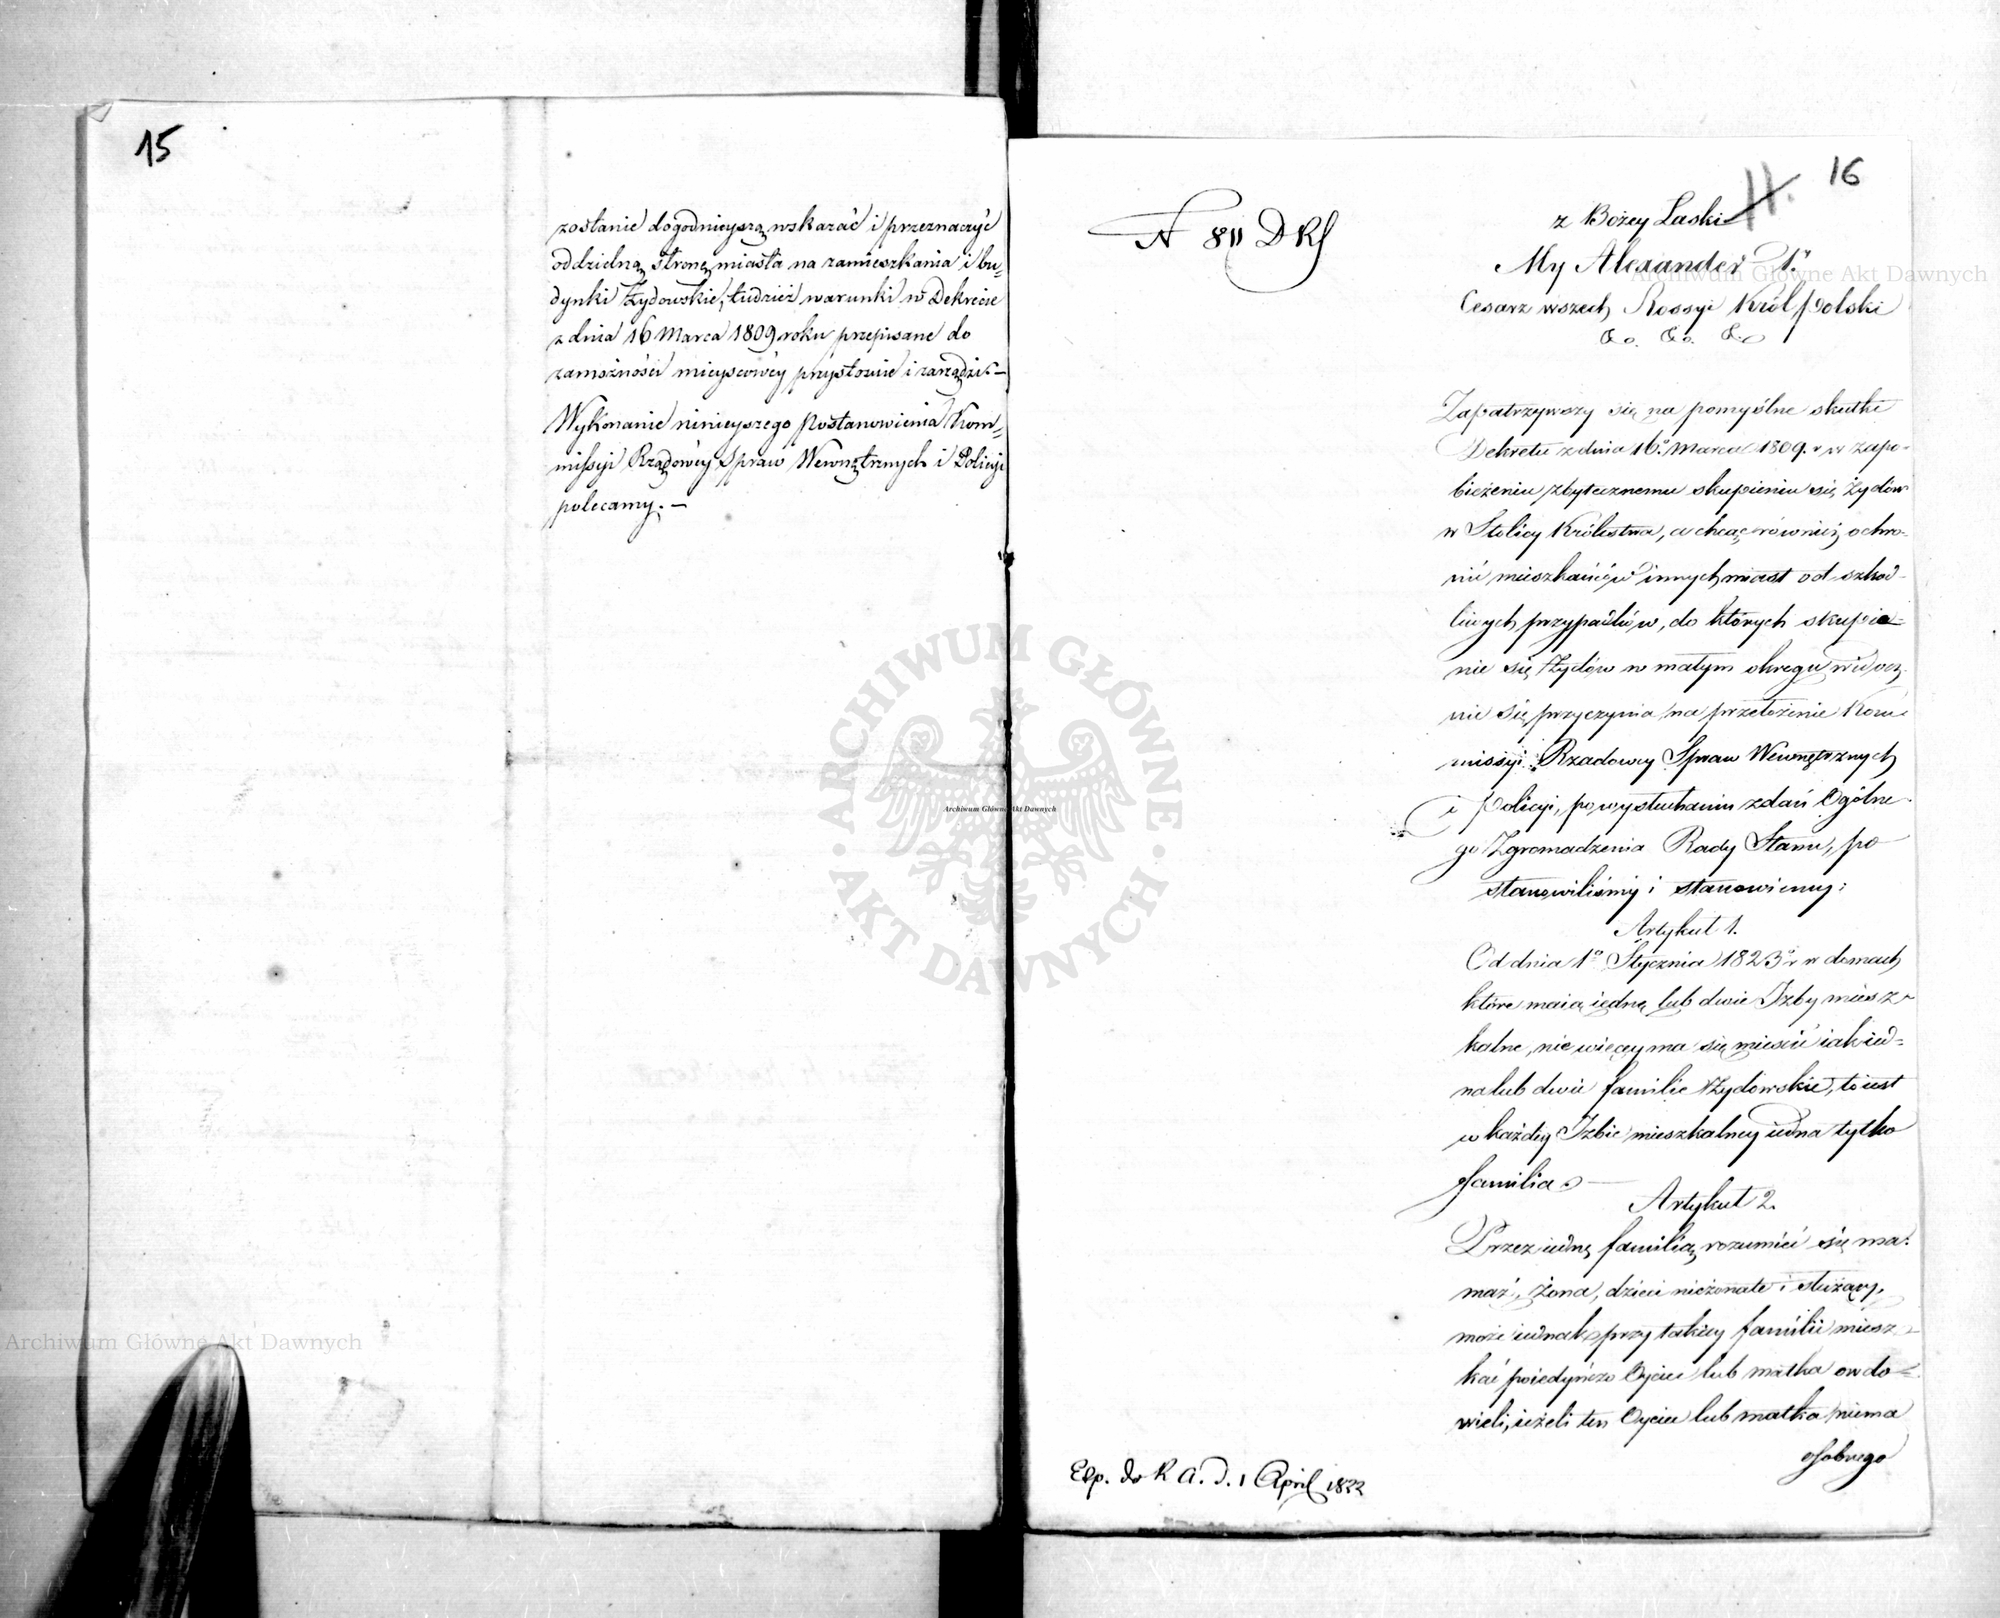 15
zostanie dogodnieyszą wskazać i przeznaczyć
oddzielną stronę miasta na zamieszkania i bu-
dynki Żydowskie, tudzież warunki w Dekrecie
z dnia 16 Marca 1809 roku przepisane do
zamożności mieyscowéy przystosuie i zarządzi.—
Wykonanie ninieyszego Postanowienia Kom-
missyi Rządowéy Spraw Wewnętrznych i Policyi
polecamy.—
16
N 811 D Kf
z Bożey Łaski
My Alexander 1.
Cesarz wszech Rossyi Król Polski
&c. &c. &c.
Zapatrzywszy się na pomyślne skutki
Dekretu z dnia 16o Marca 1809. r w zapo-
bieżeniu zbytecznemu skupieniu się Żydów
w Stolicy Królestwa, a chcąc również ochro-
nić mieszkańców innych miast od szkod-
liwych przypadków, do których skupie-
nie się Żydów w małym okręgu widocz-
nie się przyczynia na przełożenie Kom-
missyi Rządowey Spraw Wewnętrznych
i Policyi, po wysłuchaniu zdań Ogólne-
go Zgromadzenia Rady Stanu, po-
stanowiliśmy i stanowiemy:
Artykuł 1.
Od dnia 1o Stycznia 1823o r w domach
które maią iednę lub dwie Izby miesz-
kalne, nie więcey ma się mieścić iak ied-
na lub dwie familie Żydowskie, to iest
w każdey Izbie mieszkalney iedna tylko
familia.—
Artykuł 2.
Przez iednę familią rozumieć się ma:
mąż, żona, dzieci nieżonate i służący,
może iednak przy takiey familii miesz-
kać poiedyńczo Oyciec lub matka owdo-
wieli, ieżeli ten Oyciec lub matka niema
osobnego
Exp. do K A. d. 1 April 1822
ARCHIWUM GŁÓWNE · AKT DAWNYCH ·
Archiwum Główne Akt Dawnych
Archiwum Główne Akt Dawnych
Archiwum Główne Akt Dawnych